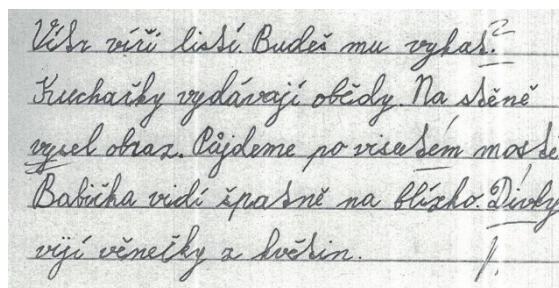 Vítr víří listí. Budeš mu vykat.?
Kuchařky vydávají obědy. Na stěně
vysel obraz. Půjdeme po visutém moste
Babička vidí špatně na blízko. Dívky
vijí věnečky z květin.